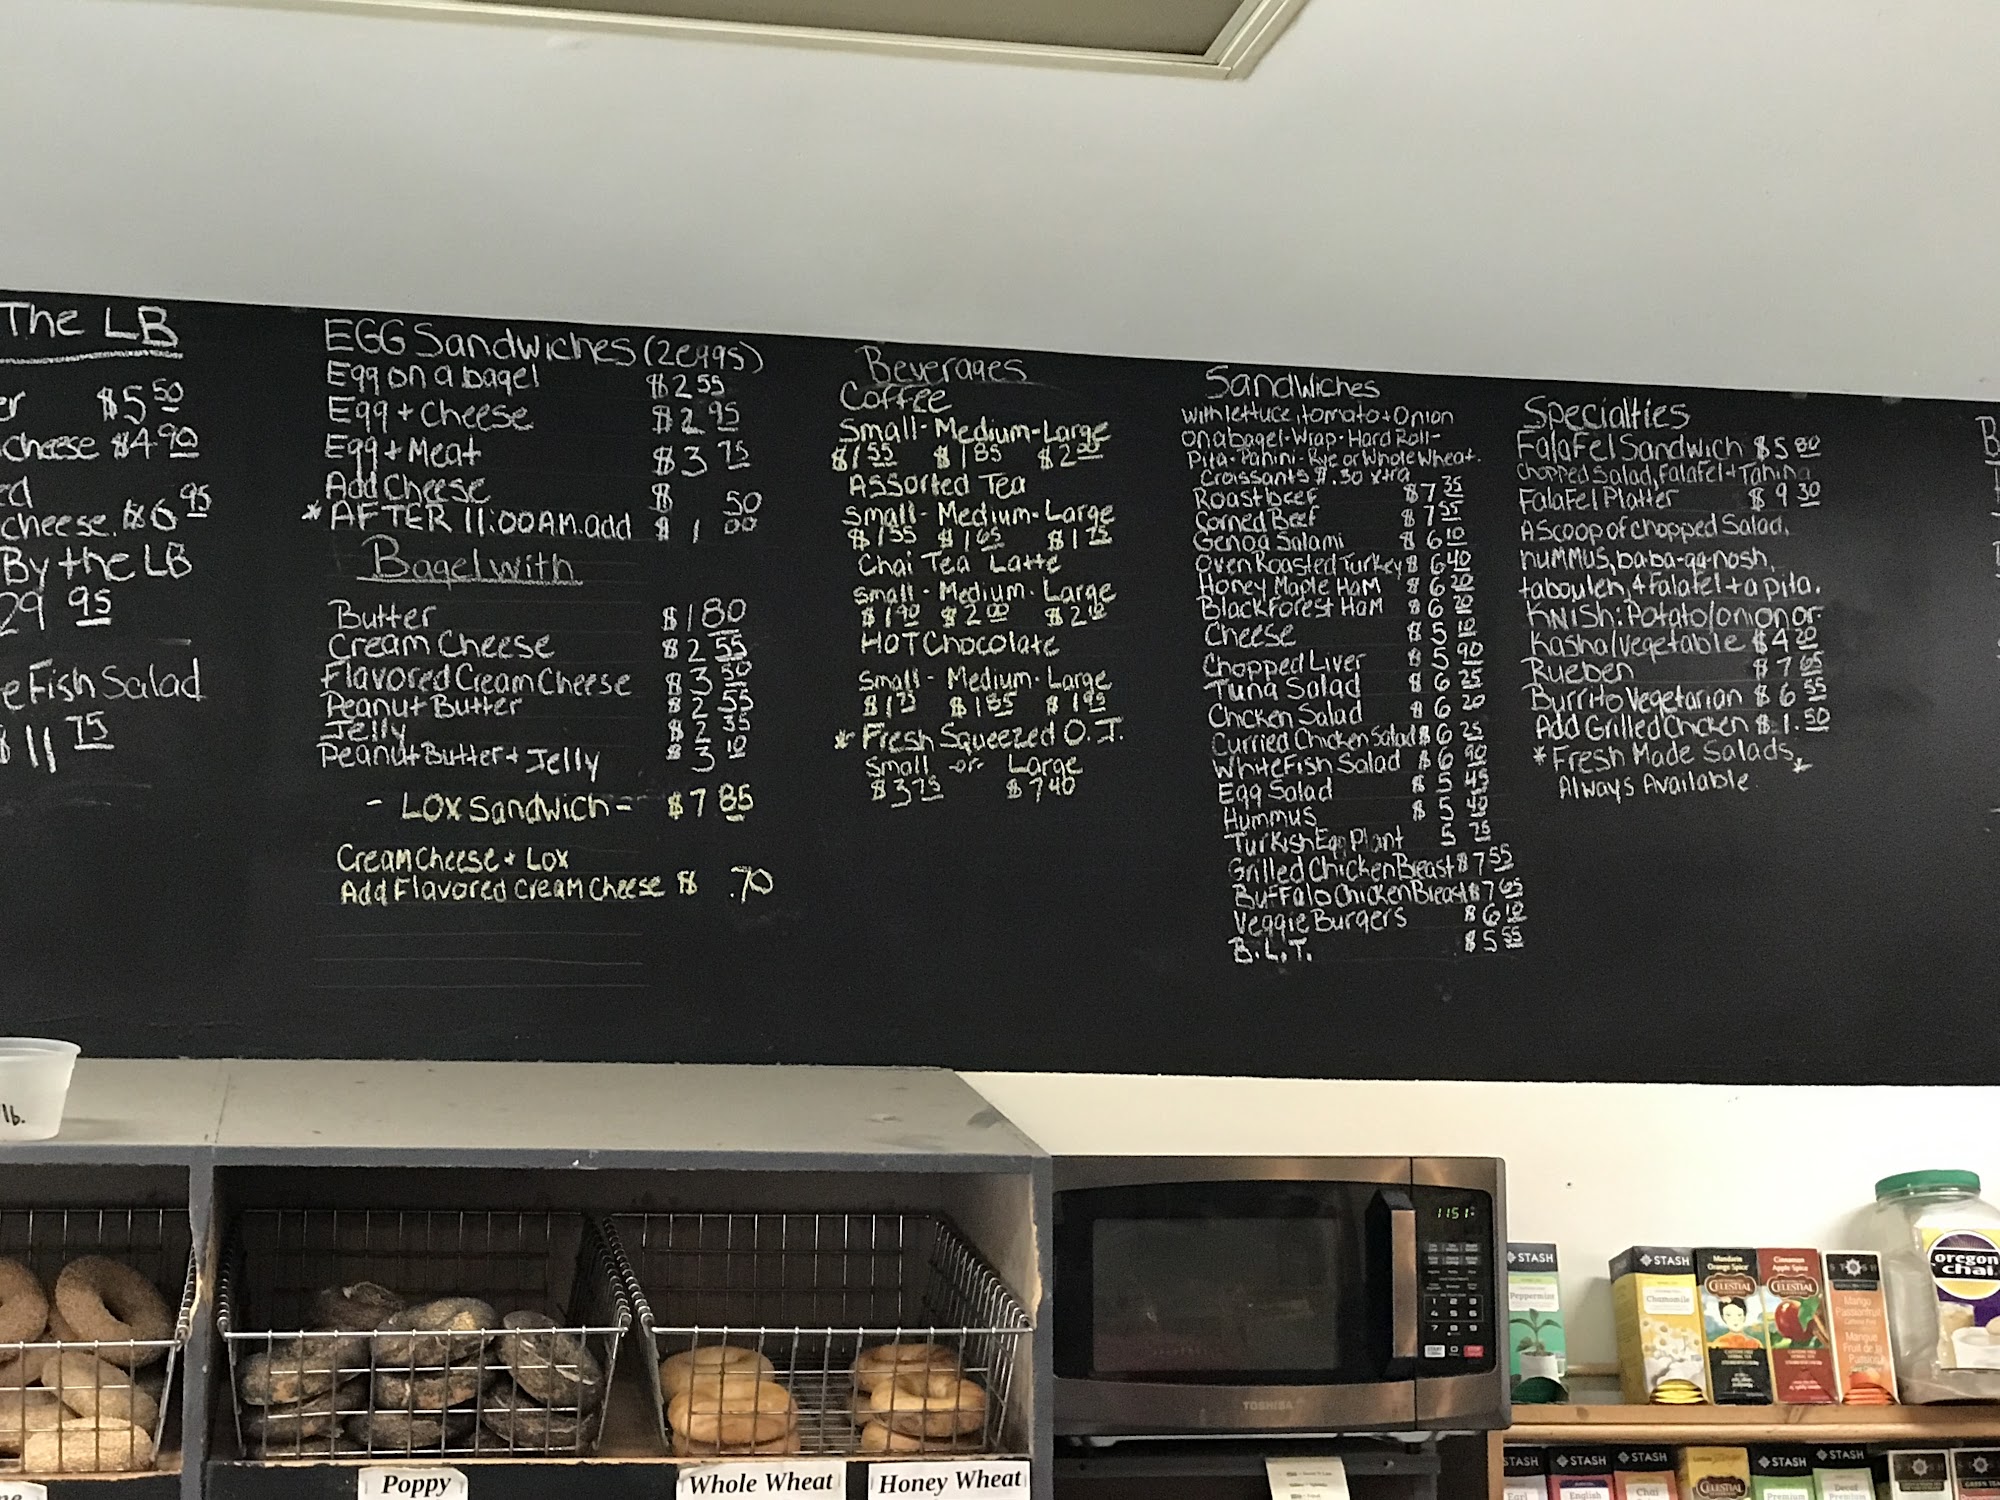 The LB
er $5.50
cheese $4.90
ed
cheese. $6.95
By the LB
29.95
e Fish Salad
$11.75
EGG Sandwiches (2eggs)
Egg on a bagel $2.55
Egg + Cheese $2.95
Egg + Meat $3.75
Add Cheese $ 50
* AFTER 11:00 A.M. add $1.00
Bagel with
Butter $1.80
Cream Cheese $2.55
Flavored Cream Cheese $3.50
Peanut Butter $2.55
Jelly $2.35
Peanut Butter + Jelly $3.10
- Lox Sandwich - $7.85
Cream Cheese + Lox
Add Flavored Cream Cheese $ .70
Beverages
Coffee
Small - Medium - Large
$1.55 $1.85 $2.00
Assorted Tea
Small - Medium - Large
$1.55 $1.65 $1.75
Chai Tea Latte
Small - Medium - Large
$1.90 $2.00
HOT Chocolate
Small - Medium - Large
$1.75 $1.85 $1.95
* Fresh Squeezed O.J.
Small or Large
$3.75 $7.40
Sandwiches
with lettuce, tomato + Onion
on a bagel - Wrap - Hard Roll -
Pita - Panini - Rye or Whole Wheat.
Croissants $.50 xtra
Roast beef $7.35
Corned Beef $7.55
Genoa Salami $6.10
Oven Roasted Turkey $6.40
Honey Maple Ham $6.20
Black Forest Ham $6.20
Cheese $5.10
Chopped Liver $5.90
Tuna Salad $6.25
Chicken Salad $6.20
Curried Chicken Salad $6.25
White Fish Salad $6.90
Egg Salad $5.45
Hummus $5.40
Turkish Egg Plant 5.75
Grilled Chicken Breast $7.55
Buffalo Chicken Breast $7.65
Veggie Burgers $6.10
B.L.T. $5.55
Specialties
Falafel Sandwich $5.80
Chopped Salad, Falafel + Tahina
Falafel Platter $9.30
A Scoop of chopped Salad,
hummus, baba-ga-nosh,
tabouleh, 4 Falafel + a pita.
Knish: Potato/onion or
Kasha/vegetable $4.20
Rueben $7.65
Burrito Vegetarian $6.55
Add Grilled Chicken $1.50
* Fresh Made Salads *
Always Available
/lb.
1151
TOSHIBA
STASH
Peppermint
STASH
Chamomile
Mandarin
Orange Spice
CELESTIAL
Cinnamon
Apple Spice
CELESTIAL
Mango
Passionfruit
Mangue
Fruit de la
Passion
oregon
chai
Poppy
Whole Wheat
Honey Wheat
STASH
Earl
STASH
English
STASH
Chai
Lemon
CELESTIAL
STASH
Premium
STASH
Decaf
Premium
STASH